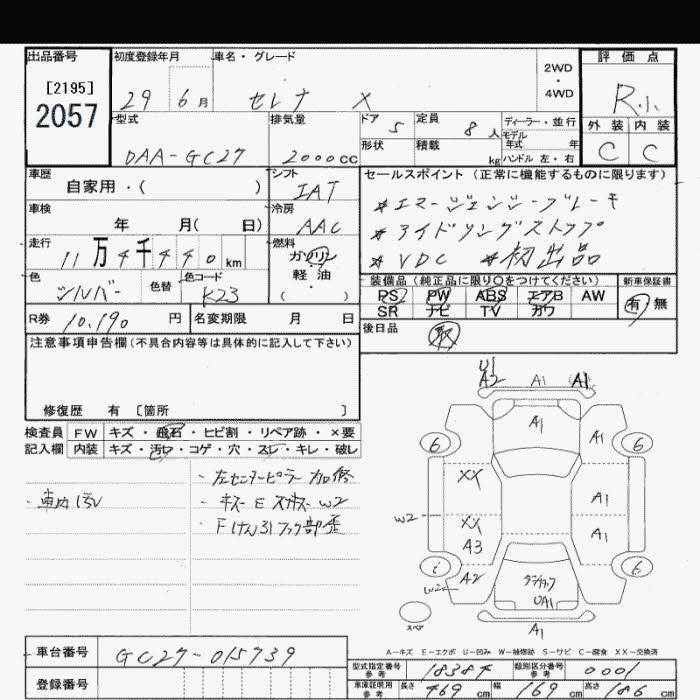 出品番号 初度登録年月 車名・グレード 評価点
[2195]
2057
29 6月 セレナ X 2WD・4WD R小
型式 排気量 ドア 5 定員 8人 ディーラー・並行 外装 内装
モデル年式 年
DAA-GC27 2000cc 形状 積載 kg ハンドル 左・右 C C
車歴 シフト セールスポイント (正常に機能するものに限ります)
自家用・( ) IAT *エマージェンシーブレーキ
車検 冷房 *アイドリングストップ
年 月( 日) AAC *VDC *初出品
走行 燃料
11万4千440km ガソリン
軽油
( )
装備品 (純正品に限り○をつけてください) 新車保証書
色 色替 色コード
シルバー K23
PS PW ABS エアB AW 有 無
SR ナビ TV カワ
R券 10,190円 名変期限 月 日 後日品 取
注意事項申告欄(不具合内容等は具体的に記入して下さい)
修復歴 有 [箇所 ]
検査員 FW キズ・飛石・ヒビ割・リペア跡・×要
記入欄 内装 キズ・汚レ・コゲ・穴・スレ・キレ・破レ
・車内汚レ
・左センターピラー加修
・キズ E ステップ W2
・Fけん引フック部歪
U1
A2 A1 A1
A1
6 A1 6
XX
A1
W2
XX A1
A3
A2
6
W2
UA1
A1
スペア
A-キズ E-エクボ U-凹み W-補修跡 S-サビ C-腐食 XX-交換済
車台番号 GC27-015739
型式指定番号 参考 18384 類別区分番号 参考 0001
登録番号
車庫証明用 参考 長さ 469cm 幅 169cm 高さ 186cm